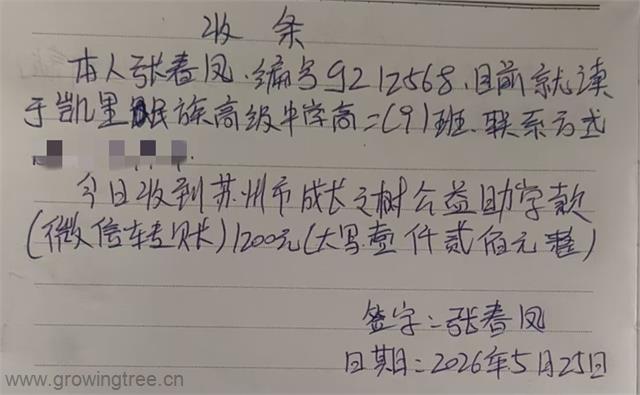 收条
本人张春凤.编号9212568.目前就读
于凯里民族高级中学高二(9)班.联系方式
今日收到苏州市成长之树公益助学款
(微信转账)1200元(大写壹仟贰佰元整)
签字:张春凤
日期:2026年5月25日
www.growingtree.cn